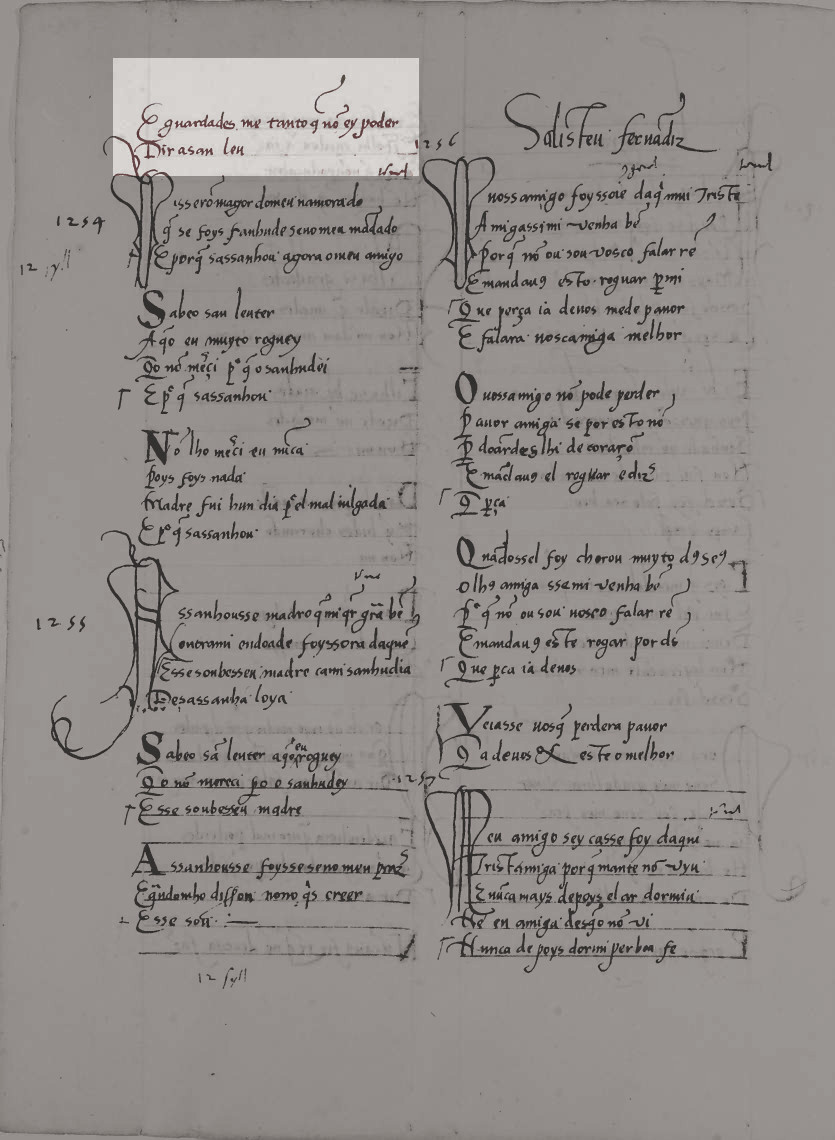 E guardades me tanto q̃ nõ ey poder
Dir a san leu
1254
isserõ magor domeu namorado
q̃ se foys sanhude seno meu mãdado
E porq̃ sassanhou agora omeu amigo
Sabeo sau leuter
Aq̃o eu muyto roguey
Qo nõ mer̃ci pᵉ q̃ o sanhudei
E pᵉ q̃ sassanhou
Nõ lho mer̃ci eu mica
poys foys nada
Madre fui hun dia pᵉ el mal iulgada
E pᵉ q̃ sassanhou
1255
Assanhousse madre q̃ mi q̃r grã bẽ
Contrami endoade foyssora daquẽ
E sse soubesseu madre camisanhudia
Desassanha loya
Sabeo sã leuter aq̃o eu roguey
Qo nõ mereci po o sanhudey
E sse soubesseu madre
Assanhousse foysse seno meu praz̃
E q̃ndomho disseron nono q̃s creer
E sse sou
12 syll
1256
Salisteu fernãdiz
Vossamigo foyssoie daq̃ mui Triste
Amigassimi venha bẽ
Porq̃ nõ ousou vosco falar rẽ
E mandauꝯ esto roguar pmi
Que perça ia deuos mede pauor
E falara uoscamiga melhor
Ouossamigo nõ pode perder
Pauor amiga se por esto nõ
Pdoardeslhi de coraçõ
E mãdauꝯ el roguar e diz̃
Q pça
Quãdossel foy chorou muyto dꝯ seꝯ
olhꝯ amiga ssemi venha bẽ
pᵉ q̃ nõ ousou uosco falar rẽ
E mandauꝯ este rogar por ds̃
Que pca ia deuos
Veiasse uosq̃ perdera pauor
Q a deuos & este o melhor
1257
Meu amigo sey casse foy daqui
Tristamiga porq̃ mante nõ vyu
E nũca mays depoys el ar dormiu
Nẽ eu amiga desq̃o nõ vi
Nunca depoys dormi per boa fe